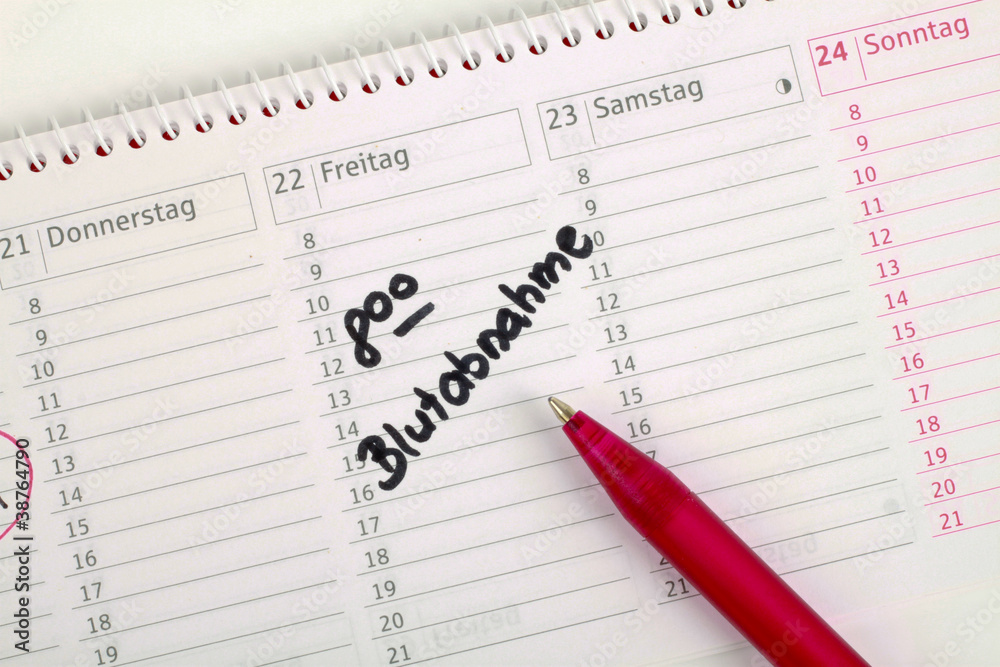 21 Donnerstag
8
9
10
11
12
13
14
15
16
17
18
19
22 Freitag
8
9
10
11
12
13
14
15
16
17
18
19
20
21
800
Blutabnahme
23 Samstag
8
9
10
11
12
13
14
15
16
17
20
21
24 Sonntag
8
9
10
11
12
13
14
15
16
17
18
19
20
21
Adobe Stock | #38764790